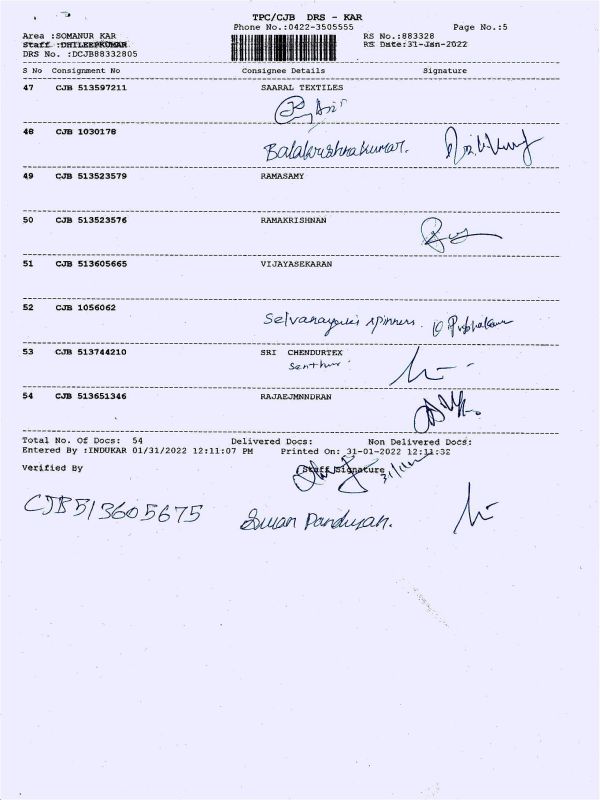 TPC/CJB DRS - KAR
Phone No.:0422-3505555 Page No.:5
Area :SOMANUR KAR RS No.:883328
Staff :DHILEEPKUMAR RS Date:31-Jan-2022
DRS No. :DCJB88332805
S No Consignment No Consignee Details Signature
47 CJB 513597211 SAARAL TEXTILES
48 CJB 1030178
Balakrishnakumar.
49 CJB 513523579 RAMASAMY
50 CJB 513523576 RAMAKRISHNAN
51 CJB 513605665 VIJAYASEKARAN
52 CJB 1056062
Selvanayaki spinners.
53 CJB 513744210 SRI CHENDURTEX
Senthur
54 CJB 513651346 RAJAEJMNNDRAN
Total No. Of Docs: 54 Delivered Docs: Non Delivered Docs:
Entered By :INDUKAR 01/31/2022 12:11:07 PM Printed On: 31-01-2022 12:11:32
Verified By (Staff Signature
CJB513605675